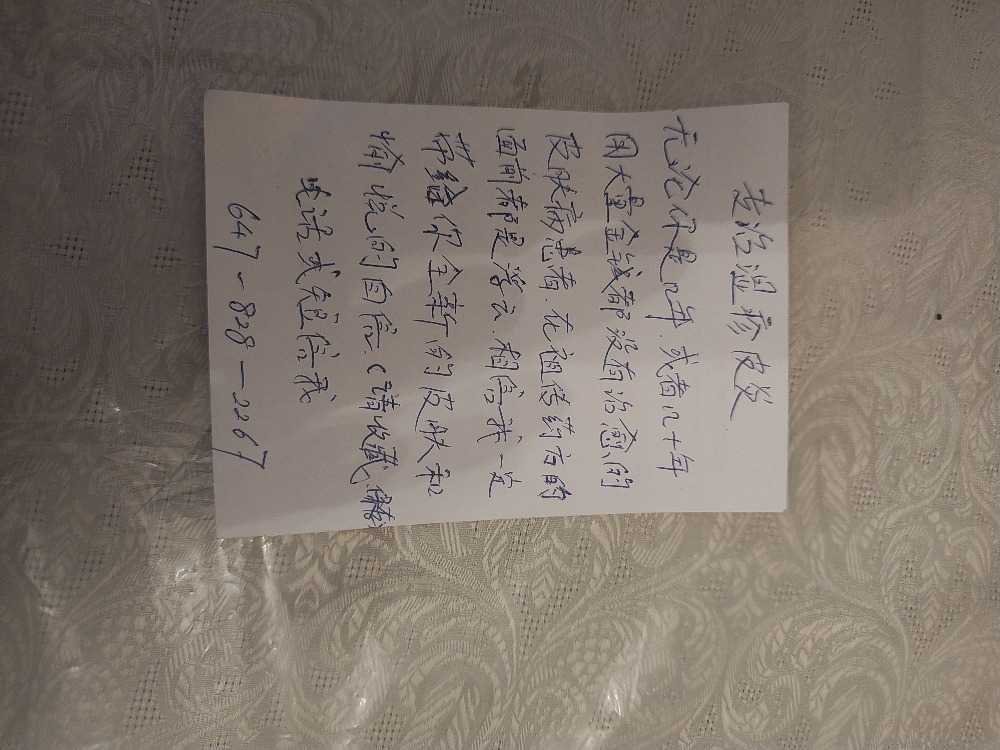 专治湿疹皮炎
无论你是口年.或者几十年
用大量金钱都没有治愈的
皮肤病患者.在祖传药方的
面前都是浮云.相信我一定
带给你全新的皮肤和
愉悦的自信.(请收藏.
电话或短信我
647-828-2267